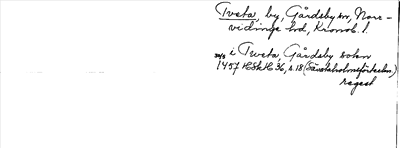 Tveta, by, Gårdsby sn, Nor-
vidinge hd, Kronob. l.
30/6 i Tweta, Gårdsby sokn
1457 HSH 36, s. 18 (Säfstaholmsförteckn.)
regest